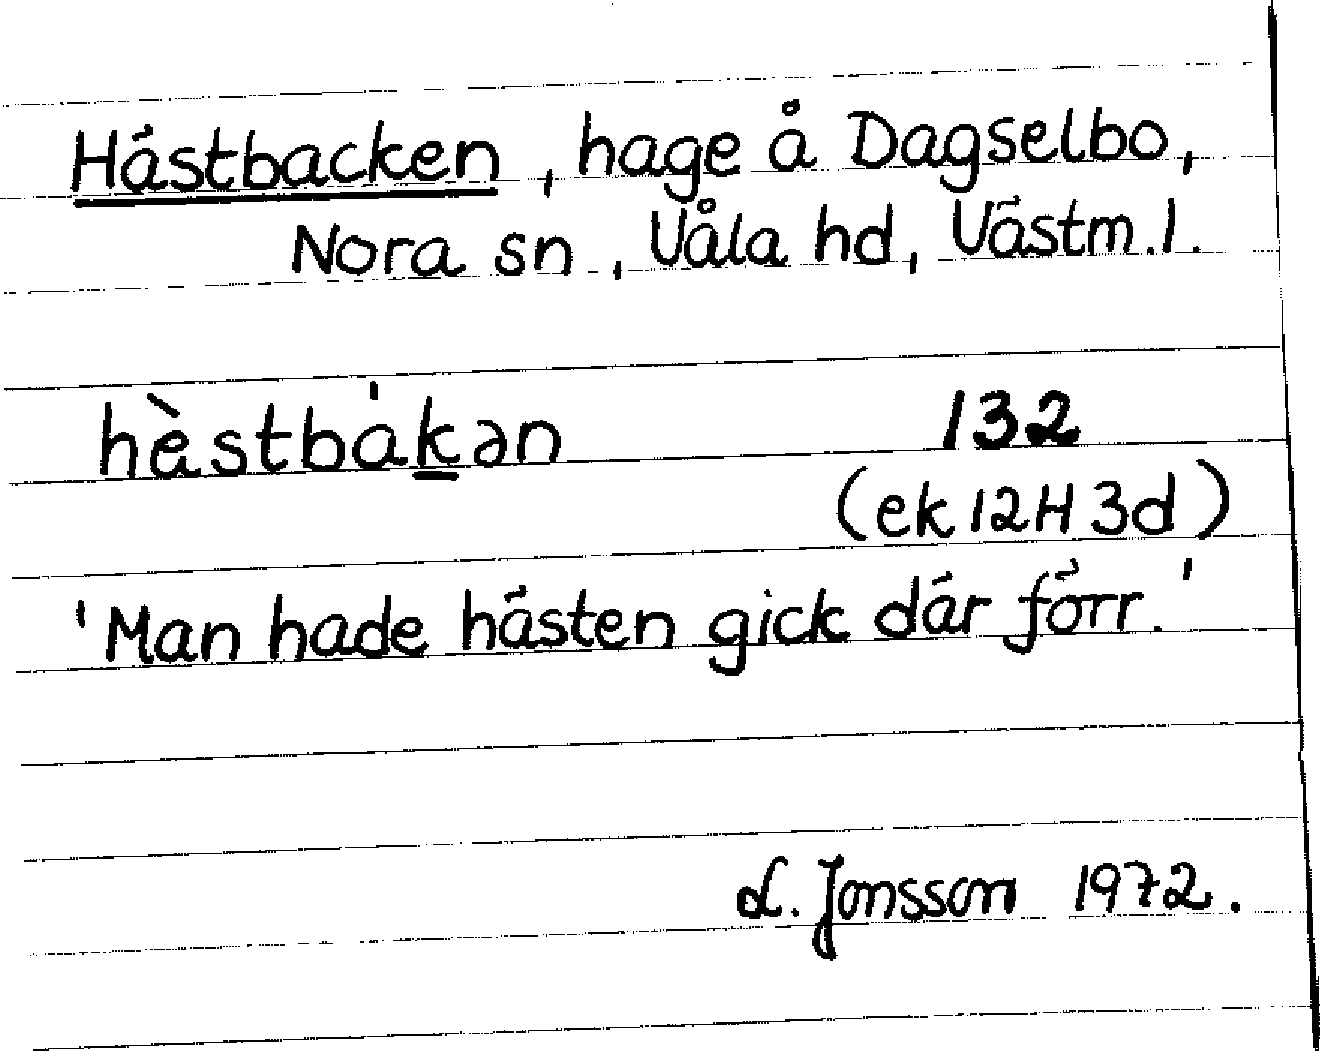 Hästbacken, hage å Dagselbo,
Nora sn, Våla hd, Västm.l.
hèstba̍k̲ən 132
(ek 12H 3d)
'Man hade hästen gick där förr.'
L. Jonsson 1972.